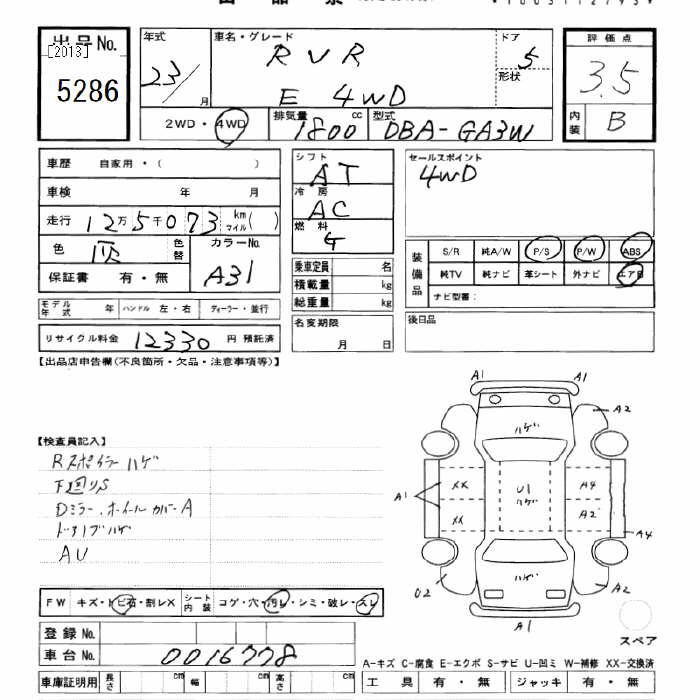 出品票
*1003112793*
出品No.
[2013]
5286
年式
23/
月
車名・グレード
RVR
E 4WD
ドア
5
形状
評価点
3.5
内装
B
2WD・4WD
排気量
1800
cc
型式
DBA-GA3W
車歴 自家用・( )
車検 年 月
走行 12万5千073 km マイル( )
色
色替
カラーNo.
A31
保証書 有・無
モデル年式 年
ハンドル 左・右
ディーラー・並行
リサイクル料金 12330 円 預託済
シフト
AT
冷房
AC
燃料
G
乗車定員 名
積載量 kg
総重量 kg
名変期限
月 日
セールスポイント
4WD
装備品
S/R 純A/W P/S P/W ABS
純TV 純ナビ 革シート 外ナビ エアB
ナビ型番:
後日品
【出品店申告欄(不良箇所・欠品・注意事項等)】
【検査員記入】
Rスポイラーハゲ
下回りS
Dミラー.ホイールカバーA
ドアノブハゲ
AU
A1
A1
A2
ハゲ
A1
XX
XX
U1
ハゲ
A4
A2
A4
ハゲ
U2
A2
A1
スペア
FW キズ・トビ石・割レX
シート内装
コゲ・穴・汚レ・シミ・破レ・スレ
登録No.
車台No. 0016778
車庫証明用 長さ cm 幅 cm 高さ cm
A-キズ C-腐食 E-エクボ S-サビ U-凹ミ W-補修 XX-交換済
工具 有・無 ジャッキ 有・無